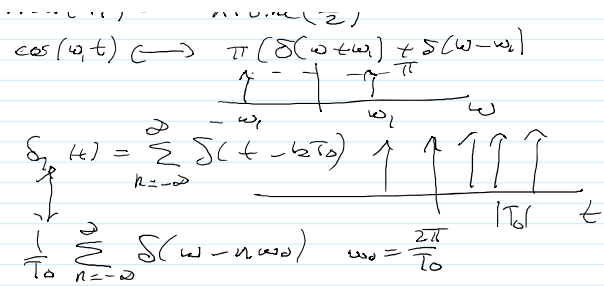 cos(ω₁t) ⟷ π(δ(ω+ω₁) + δ(ω-ω₁)
π
-ω₁ ω₁ ω
(t) = ∞ ∑ n=-∞ δ(t - kT₀)
|T₀| t
1/T₀ ∞ ∑ n=-∞ δ(ω - nω₀) ω₀ = 2π/T₀